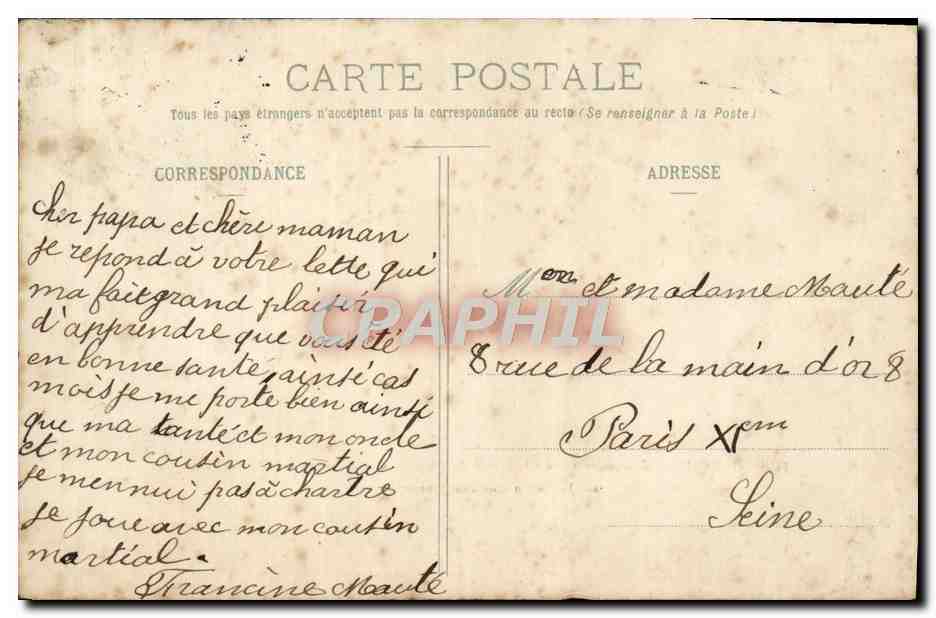 CARTE POSTALE
Tous les pays étrangers n'acceptent pas la correspondance au recto (Se renseigner à la Poste)
CORRESPONDANCE
cher papa et chère maman
je repond à votre lette qui
ma fait grand plaisir
d'apprendre que vous été
en bonne santé, ainsi cas
mois je me porte bien ainsi
que ma tante et mon oncle
et mon cousin martial
je mennui pas à chartre
je joue avec mon cousin
martial.
Francine Mauté
ADRESSE
Mon et madame Mauté
8 rue de la main d'or 8
Paris XIem
Seine
CPAPHIL